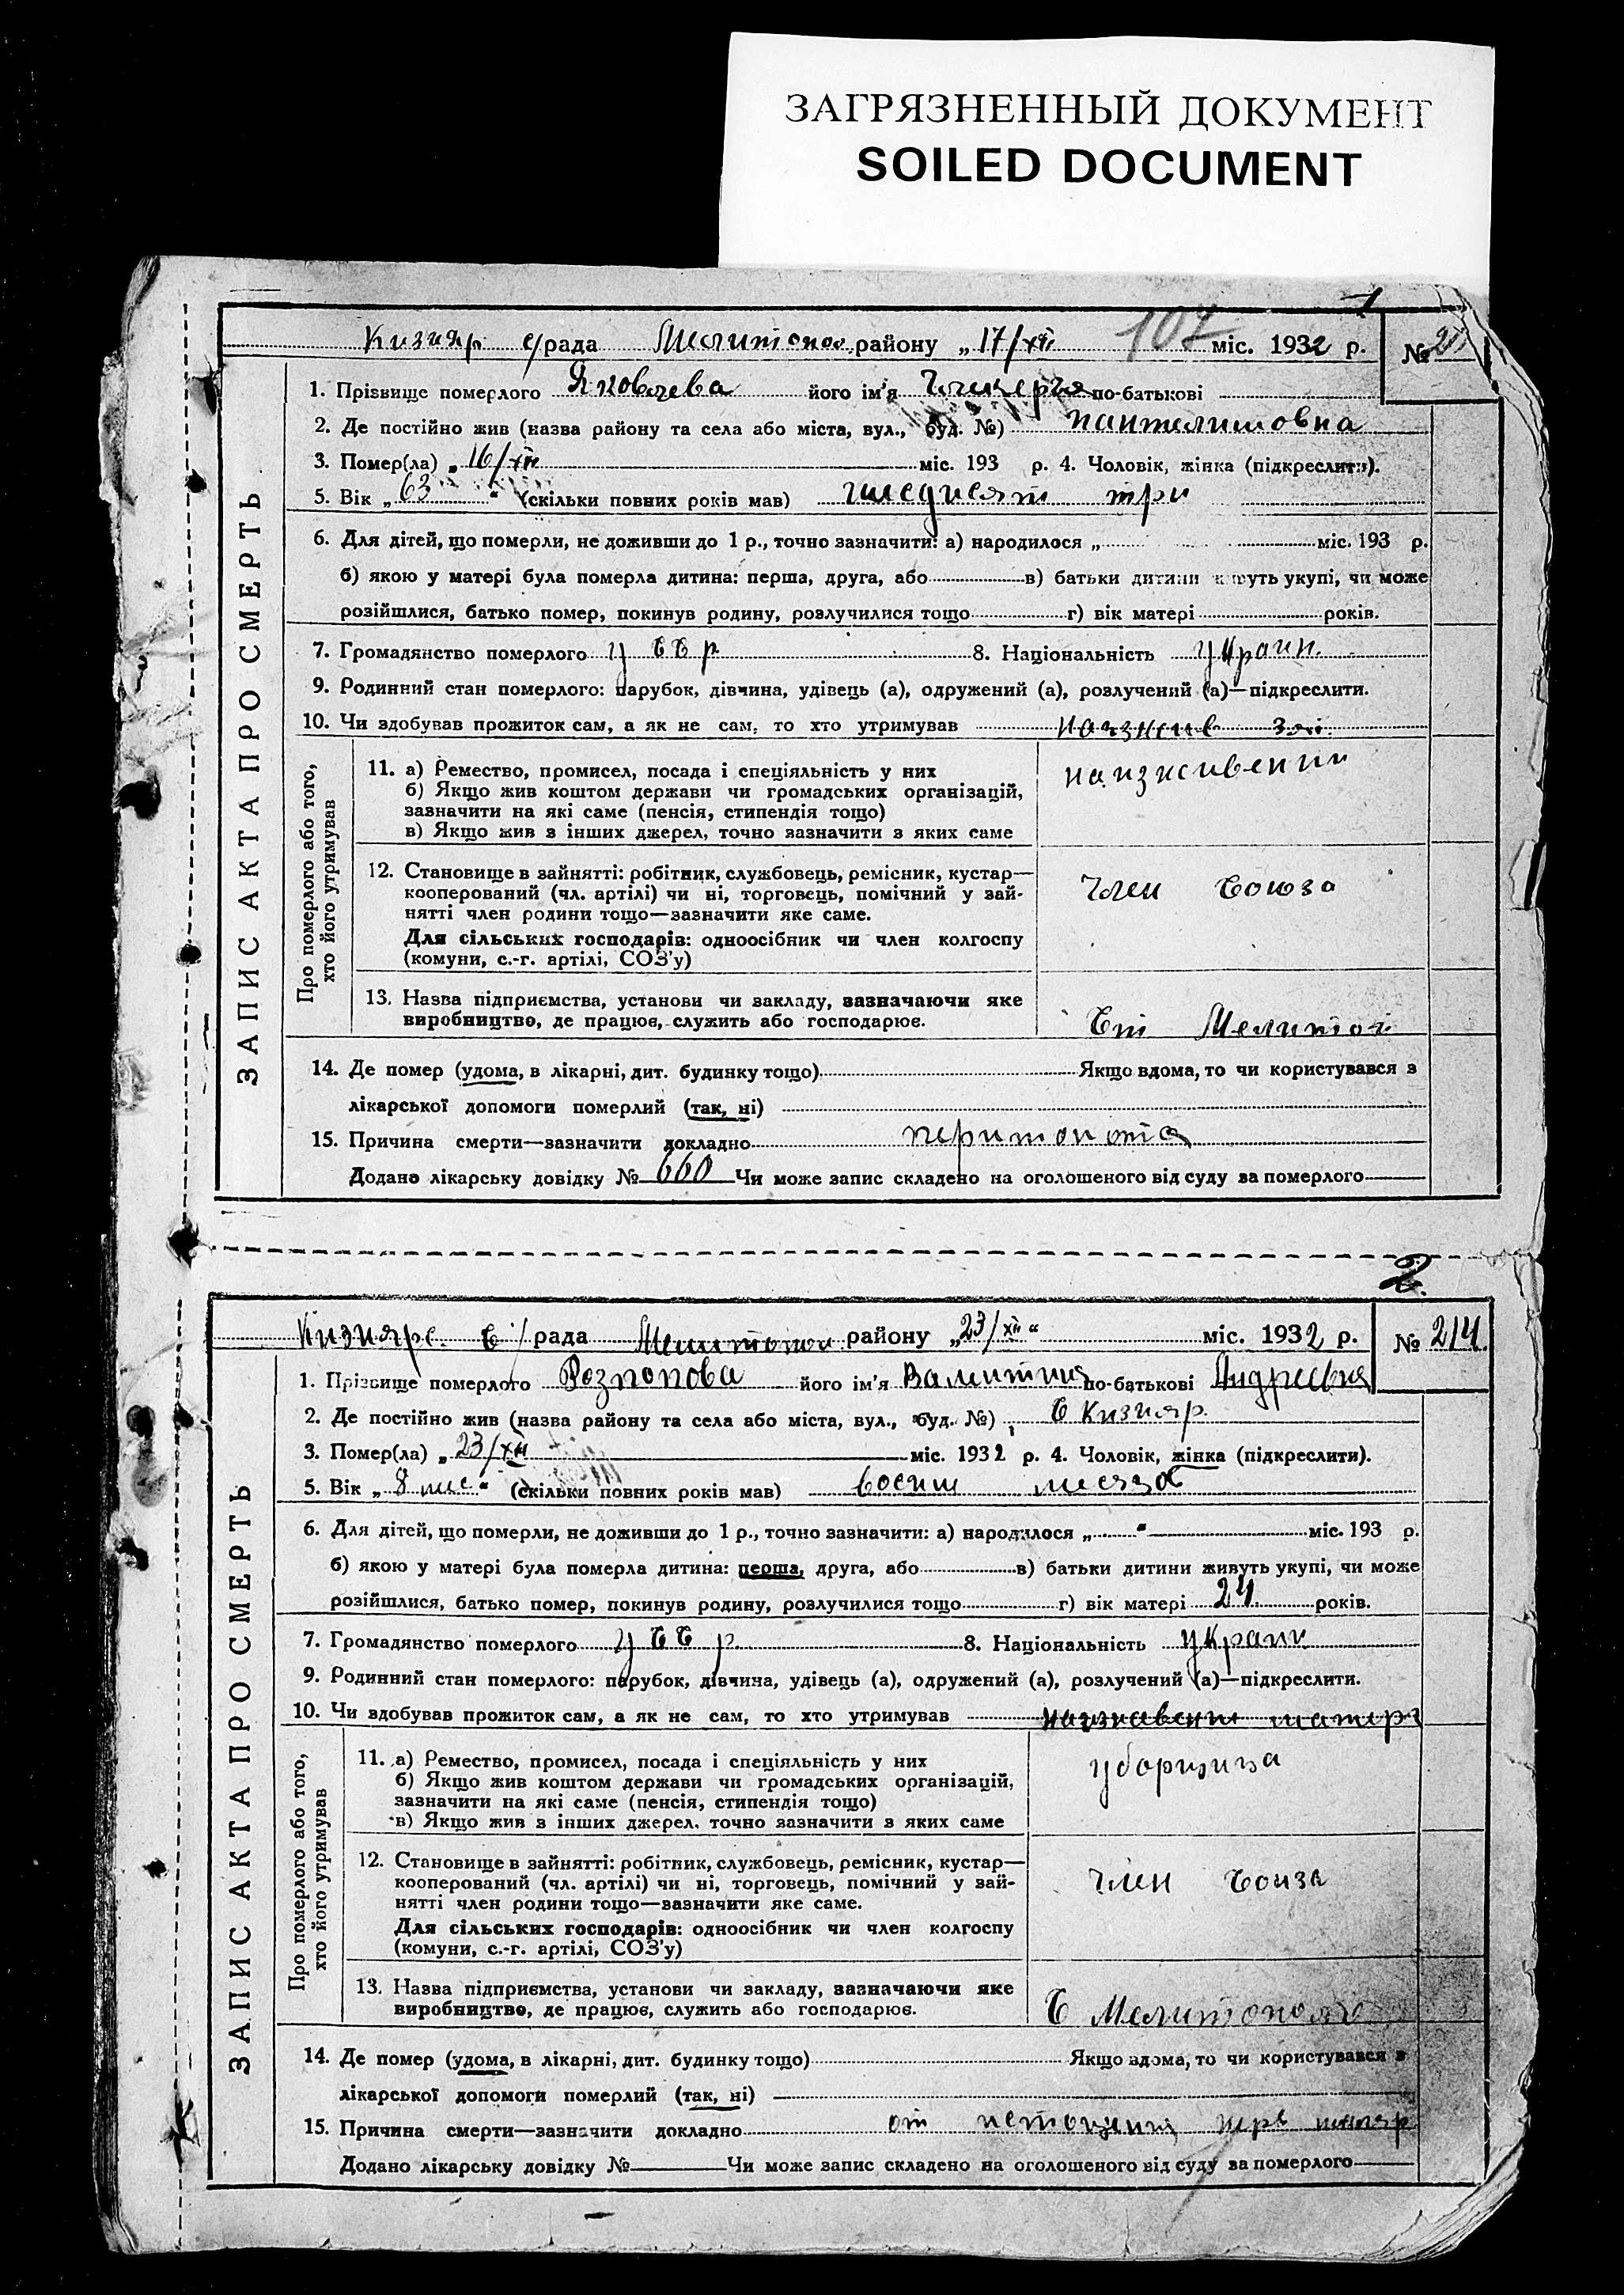 ЗАГРЯЗНЕННЫЙ ДОКУМЕНТ
SOILED DOCUMENT
1
107
Кизияр с/рада Мелитопол. району „17/XII міс. 1932 р. №
ЗАПИС АКТА ПРО СМЕРТЬ
1. Прізвище померлого Яковлева його ім'я Гликерія по-батькові
2. Де постійно жив (назва району та села або міста, вул., буд. №) Пантелимовна
3. Помер(ла) „16/XII міс. 193 р. 4. Чоловік, жінка (підкреслити).
5. Вік „63“ (скільки повних років мав) шедисят три
6. Для дітей, що померли, не доживши до 1 р., точно зазначити: а) народилося „ міс. 193 р.
б) якою у матері була померла дитина: перша, друга, або в) батьки дитини живуть укупі, чи може
розійшлися, батько помер, покинув родину, розлучилися тощо г) вік матері років.
7. Громадянство померлого УССР 8. Національність Украин.
9. Родинний стан померлого: парубок, дівчина, удівець (а), одружений (а), розлучений (а)—підкреслити.
10. Чи здобував прожиток сам, а як не сам, то хто утримував
Про померлого або того,
хто його утримував
11. а) Ремество, промисел, посада і спеціяльність у них
б) Якщо жив коштом держави чи громадських організацій,
зазначити на які саме (пенсія, стипендія тощо)
в) Якщо жив з інших джерел, точно зазначити з яких саме
наиждивении
12. Становище в зайнятті: робітник, службовець, ремісник, кустар—
кооперований (чл. артілі) чи ні, торговець, помічний у зай-
нятті член родини тощо—зазначити яке саме.
Для сільських господарів: одноосібник чи член колгоспу
(комуни, с.-г. артілі, СОЗ'у)
член Союза
13. Назва підприємства, установи чи закладу, зазначаючи яке
виробництво, де працює, служить або господарює.
Ст Мелитоп
14. Де помер (удома, в лікарні, дит. будинку тощо) Якщо вдома, то чи користувався з
лікарської допомоги померлий (так, ні)
15. Причина смерти—зазначити докладно
Додано лікарську довідку № 660 Чи може запис складено на оголошеного від суду за померлого
2
Кизиярс. С/рада Мелитопол. району „23/XII“ міс. 1932 р. № 214.
ЗАПИС АКТА ПРО СМЕРТЬ
1. Прізвище померлого Розпопова його ім'я Валентина по-батькові Андреевна
2. Де постійно жив (назва району та села або міста, вул., буд. №) С Кизияр.
3. Помер(ла) „23/XII міс. 1932 р. 4. Чоловік, жінка (підкреслити).
5. Вік „8 мес“ (скільки повних років мав) восим месяцов
6. Для дітей, що померли, не доживши до 1 р., точно зазначити: а) народилося „ “ міс. 193 р.
б) якою у матері була померла дитина: перша, друга, або в) батьки дитини живуть укупі, чи може
розійшлися, батько помер, покинув родину, розлучилися тощо г) вік матері 24. років.
7. Громадянство померлого УССР 8. Національність Украин
9. Родинний стан померлого: парубок, дівчина, удівець (а), одружений (а), розлучений (а)—підкреслити.
10. Чи здобував прожиток сам, а як не сам, то хто утримував
Про померлого або того,
хто його утримував
11. а) Ремество, промисел, посада і спеціяльність у них
б) Якщо жив коштом держави чи громадських організацій,
зазначити на які саме (пенсія, стипендія тощо)
в) Якщо жив з інших джерел, точно зазначити з яких саме
уборщица
12. Становище в зайнятті: робітник, службовець, ремісник, кустар—
кооперований (чл. артілі) чи ні, торговець, помічний у зай-
нятті член родини тощо—зазначити яке саме.
Для сільських господарів: одноосібник чи член колгоспу
(комуни, с.-г. артілі, СОЗ'у)
член Союза
13. Назва підприємства, установи чи закладу, зазначаючи яке
виробництво, де працює, служить або господарює.
С Мелитополь
14. Де помер (удома, в лікарні, дит. будинку тощо) Якщо вдома, то чи користувався з
лікарської допомоги померлий (так, ні)
15. Причина смерти—зазначити докладно от истощения
Додано лікарську довідку № Чи може запис складено на оголошеного від суду за померлого